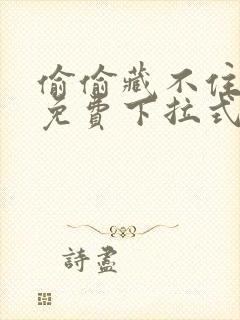 偷偷藏不住
免費下拉式
詩盡